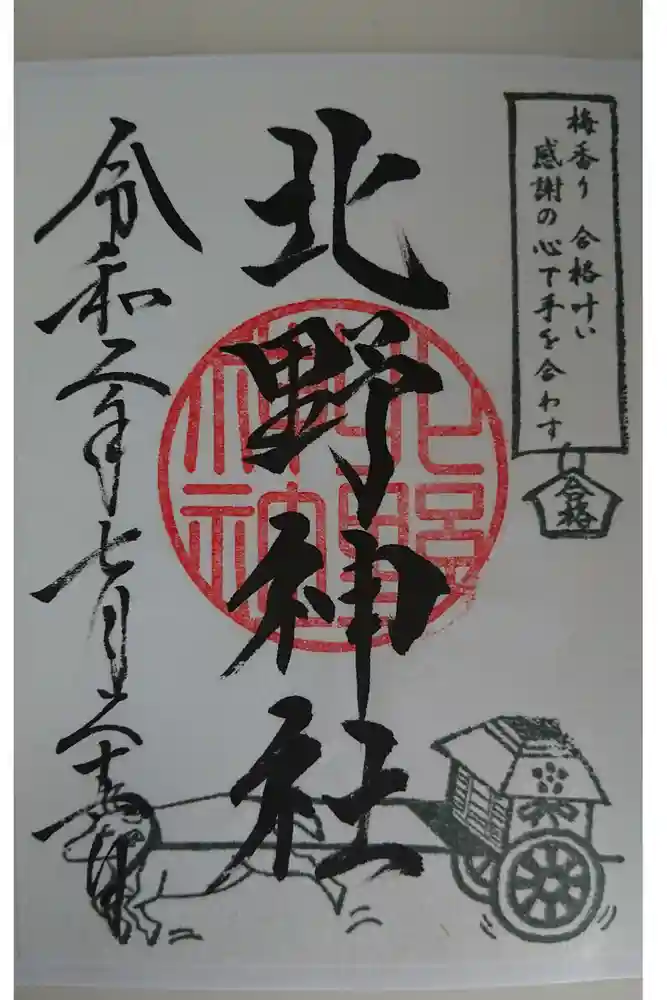 梅香り 合格叶い
感謝の心で手を合わす
合格
北野神社
北野神社
令和二年七月二十五日